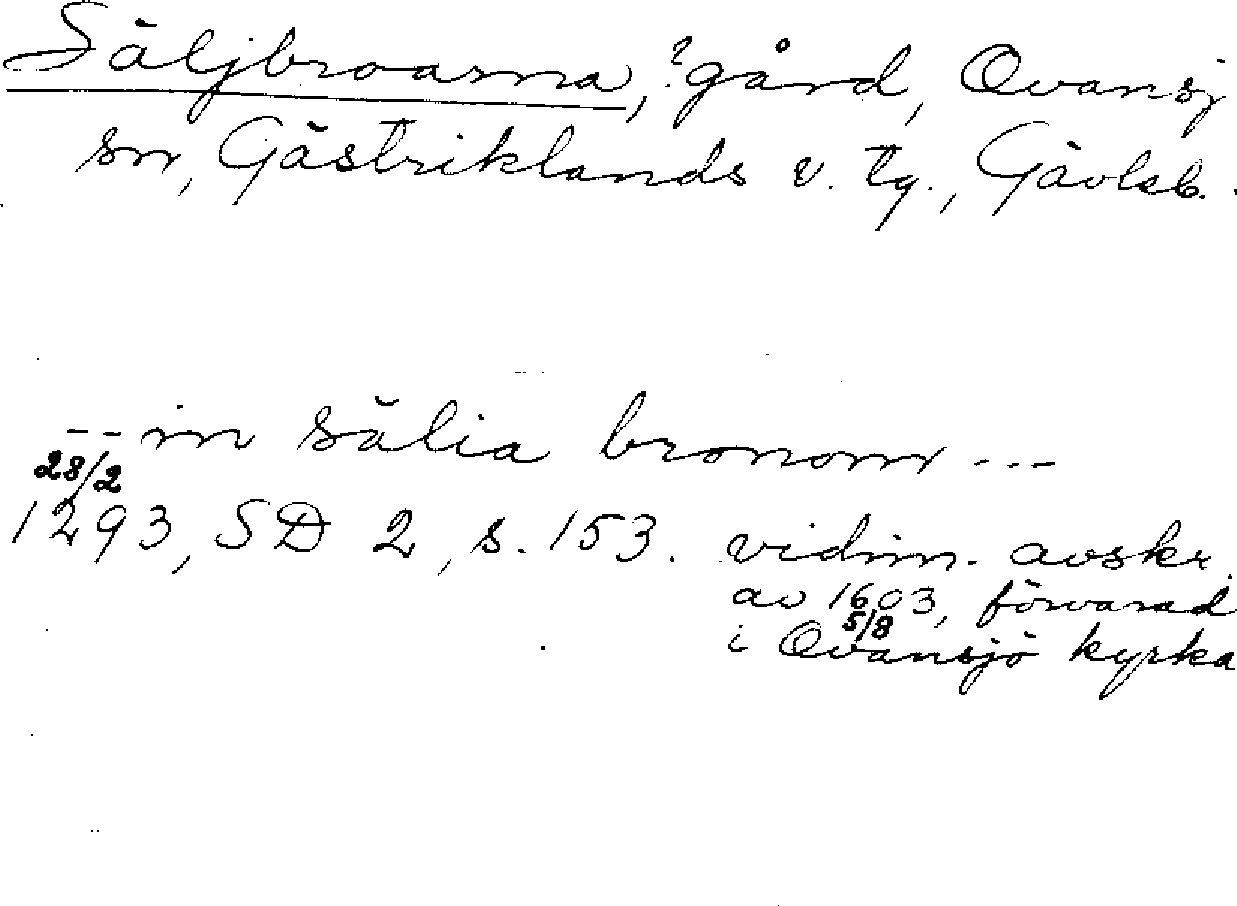 Säljbroarna, ?gård, Ovansj
sn, Gästriklands v. tg., Gävleb.
-- in sälia bronom ---
28/2
1293, SD 2, s. 153. vidim. avskr.
av 1603, förvarad
5/8
i Ovansjö kyrka